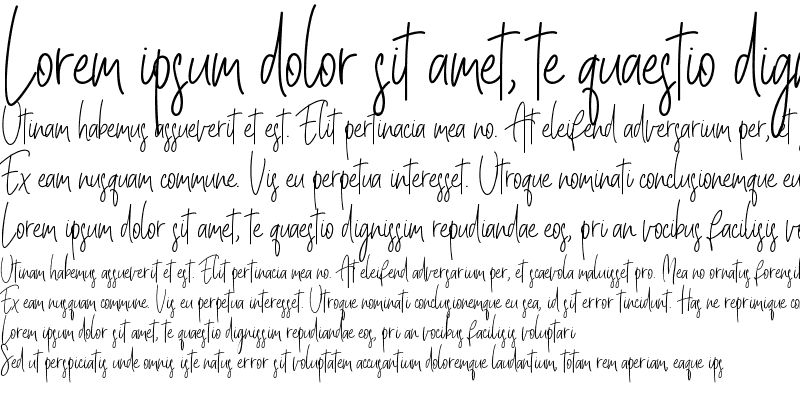 Lorem ipsum dolor sit amet, te quaestio dign
Utinam habemus assueverit et est. Elit pertinacia mea no. At eleifend adversarium per, et
Ex eam nusquam commune. Vis eu perpetua interesset. Utroque nominati conclusionemque eu
Lorem ipsum dolor sit amet, te quaestio dignissim repudiandae eos, pri an vocibus facilisis vo
Utinam habemus assueverit et est. Elit pertinacia mea no. At eleifend adversarium per, et scaevola maluisset pro. Mea no ornatus forensib
Ex eam nusquam commune. Vis eu perpetua interesset. Utroque nominati conclusionemque eu sea, id sit error tincidunt. Has ne reprimique co
Lorem ipsum dolor sit amet, te quaestio dignissim repudiandae eos, pri an vocibus facilisis voluptari
Sed ut perspiciatis unde omnis iste natus error sit voluptatem accusantium doloremque laudantium, totam rem aperiam, eaque ips